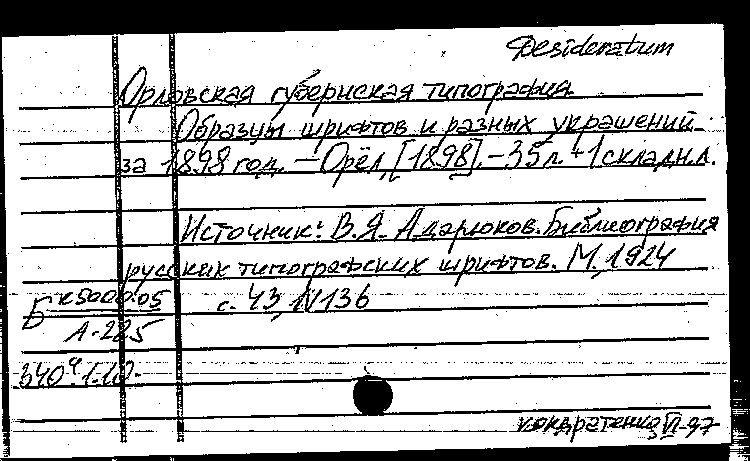 Desideratum
Орловская губернская типография
Образцы шрифтов и разных украшений
за 1898 год. — Орёл, [1898]. — 35 л. + 1 складн. л.
Источник: В.Я. Адарюков. Библиография
русских типографских шрифтов. М., 1924
с. 43, N 136
Б К5000.05
А-225
Кондратенко VI-97